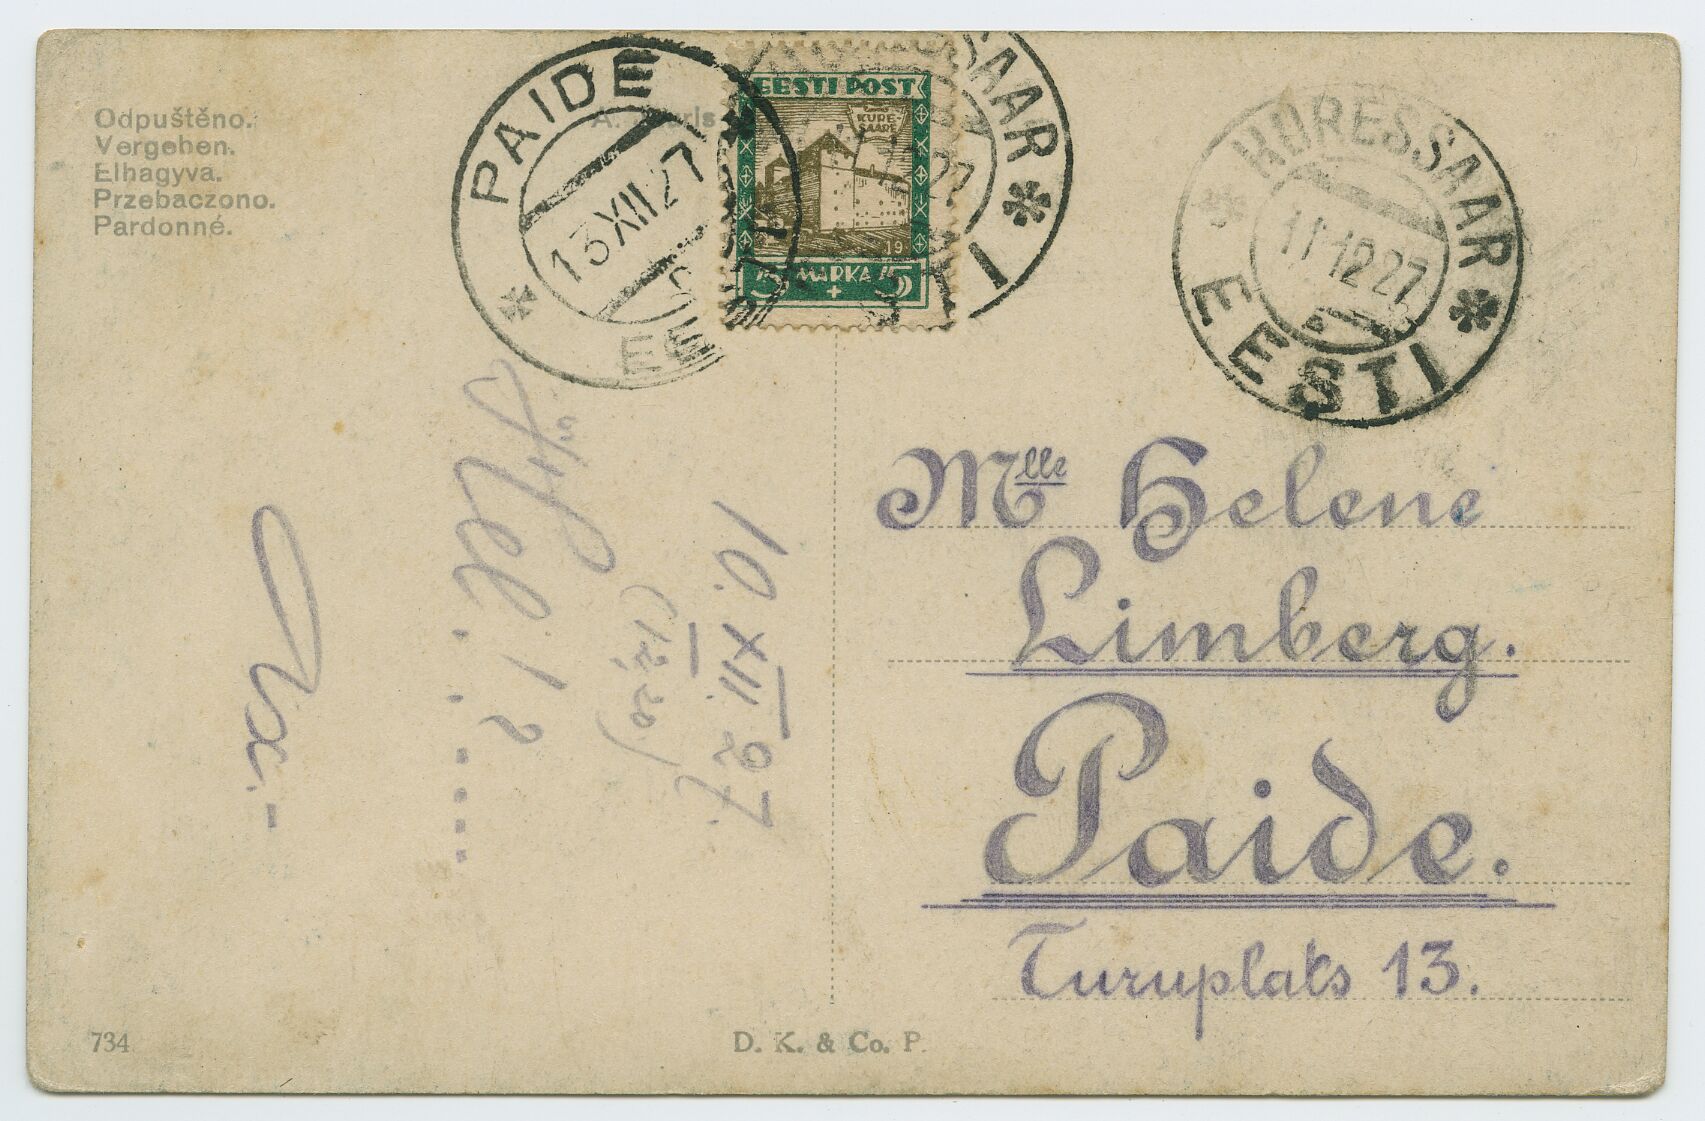 Odpuštěno.
Vergeben.
Elhagyva.
Przebaczono.
Pardonné.
PAIDE
13 XII 27
EESTI
EESTI POST
KURE-
SAARE
19
5 MARKA 5
+
KURESSAAR
EESTI
KURESSAAR
11 12 27
EESTI
10. XII. 27.
(12,20)
Hel. 1.2
Mlle Helene
Limberg.
Paide.
Turuplats 13.
734
D. K. & Co. P.